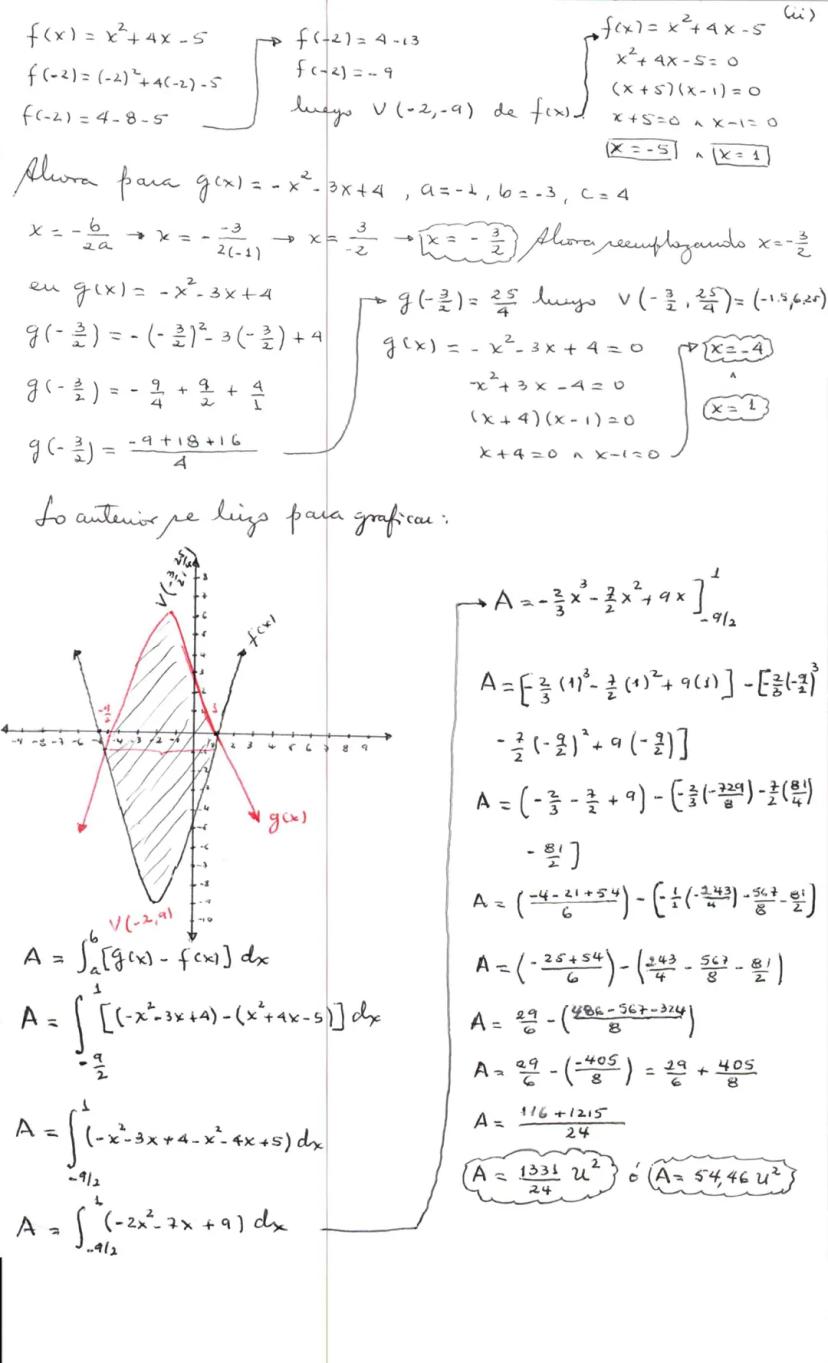 (ii)
f(x) = x² + 4x - 5
f(-2) = (-2)² + 4(-2) - 5
f(-2) = 4 - 8 - 5
f(-2) = 4 - 13
f(-2) = -9
luego V(-2, -9) de f(x)
f(x) = x² + 4x - 5
x² + 4x - 5 = 0
(x + 5)(x - 1) = 0
x + 5 = 0 ∧ x - 1 = 0
x = -5 ∧ x = 1
Ahora para g(x) = -x² - 3x + 4 , a = -1, b = -3, c = 4
x = -b/2a → x = - -3/2(-1) → x = 3/-2 → x = -3/2 Ahora reemplazando x = -3/2
en g(x) = -x² - 3x + 4
g(-3/2) = -(-3/2)² - 3(-3/2) + 4
g(-3/2) = -9/4 + 9/2 + 4/1
g(-3/2) = -9 + 18 + 16/4
g(-3/2) = 25/4 luego V(-3/2, 25/4) = (-1.5, 6,25)
g(x) = -x² - 3x + 4 = 0
x² + 3x - 4 = 0
(x + 4)(x - 1) = 0
x + 4 = 0 ∧ x - 1 = 0
x = -4
∧
x = 1
Lo anterior se hizo para graficar:
V(-3/2, 25/4)
f(x)
-9/2
1
g(x)
V(-2, 9)
A = ∫ₐᵇ [g(x) - f(x)] dx
A = ∫₋₉/₂¹ [(-x² - 3x + 4) - (x² + 4x - 5)] dx
A = ∫₋₉/₂¹ (-x² - 3x + 4 - x² - 4x + 5) dx
A = ∫₋₉/₂¹ (-2x² - 7x + 9) dx
A = -2/3 x³ - 7/2 x² + 9x ]₋₉/₂¹
A = [-2/3 (1)³ - 7/2 (1)² + 9(1)] - [-2/3 (-9/2)³
- 7/2 (-9/2)² + 9(-9/2)]
A = (-2/3 - 7/2 + 9) - [-2/3 (-729/8) - 7/2 (81/4)
- 81/2]
A = (-4 - 21 + 54/6) - [-1/1 (-243/4) - 567/8 - 81/2]
A = (-25 + 54/6) - (243/4 - 567/8 - 81/2)
A = 29/6 - (486 - 567 - 324/8)
A = 29/6 - (-405/8) = 29/6 + 405/8
A = 116 + 1215/24
A = 1331/24 u² ó A = 54,46 u²